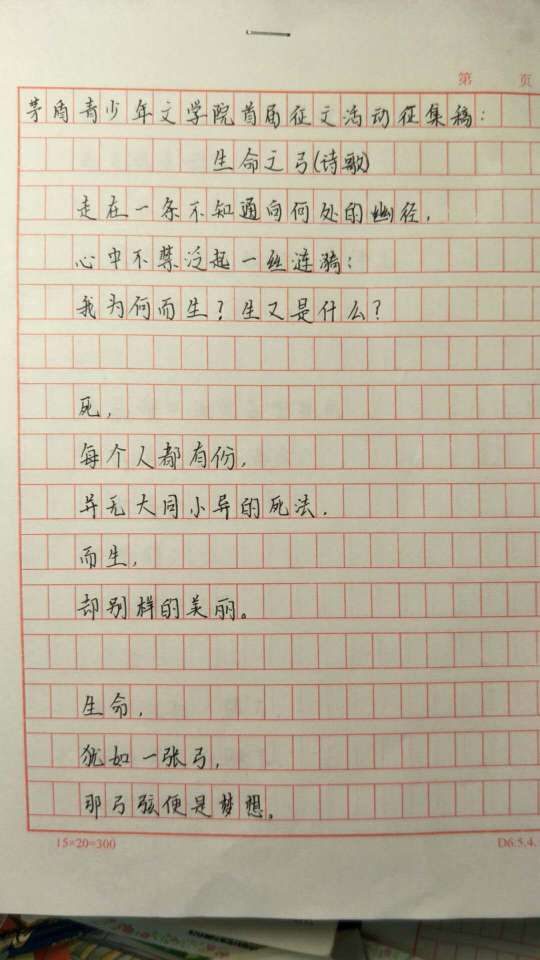 第 页
茅盾青少年文学院首届征文活动征集稿：
生命之弓(诗歌)
走在一条不知通向何处的幽径，
心中不禁泛起一丝涟漪：
我为何而生？生又是什么？
死，
每个人都有份，
并无大同小异的死法，
而生，
却别样的美丽。
生命，
犹如一张弓，
那弓弦便是梦想。
15×20=300
D6.5.4.